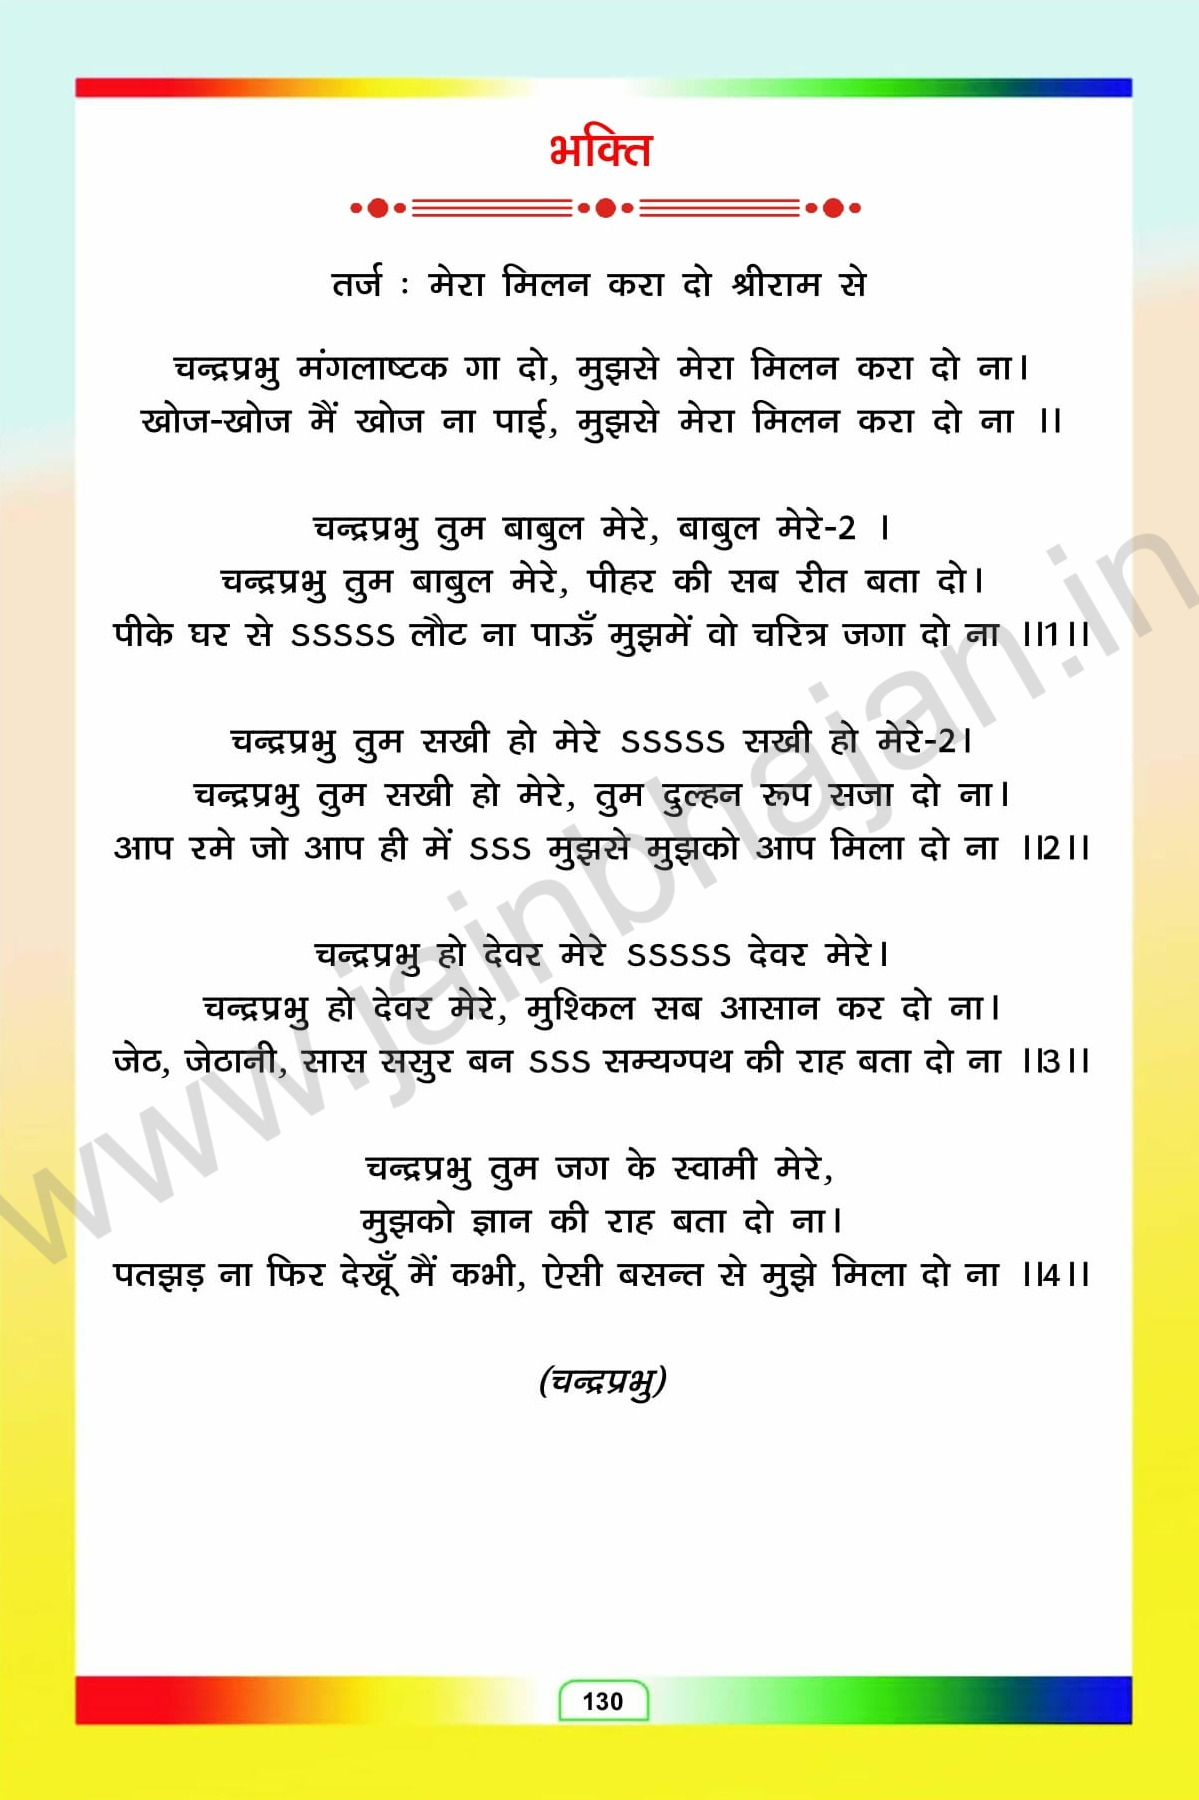 भक्ति
तर्ज : मेरा मिलन करा दो श्रीराम से
चन्द्रप्रभु मंगलाष्टक गा दो, मुझसे मेरा मिलन करा दो ना।
खोज-खोज मैं खोज ना पाई, मुझसे मेरा मिलन करा दो ना ।।
चन्द्रप्रभु तुम बाबुल मेरे, बाबुल मेरे-2 ।
चन्द्रप्रभु तुम बाबुल मेरे, पीहर की सब रीत बता दो।
पीके घर से SSSSS लौट ना पाऊँ मुझमें वो चरित्र जगा दो ना ।।1।।
चन्द्रप्रभु तुम सखी हो मेरे SSSSS सखी हो मेरे-2।
चन्द्रप्रभु तुम सखी हो मेरे, तुम दुल्हन रूप सजा दो ना।
आप रमे जो आप ही में SSS मुझसे मुझको आप मिला दो ना ।।2।।
चन्द्रप्रभु हो देवर मेरे SSSSS देवर मेरे।
चन्द्रप्रभु हो देवर मेरे, मुश्किल सब आसान कर दो ना।
जेठ, जेठानी, सास ससुर बन SSS सम्यग्पथ की राह बता दो ना ।।3।।
चन्द्रप्रभु तुम जग के स्वामी मेरे,
मुझको ज्ञान की राह बता दो ना।
पतझड़ ना फिर देखूँ मैं कभी, ऐसी बसन्त से मुझे मिला दो ना ।।4।।
(चन्द्रप्रभु)
130
www.jainbhajan.in